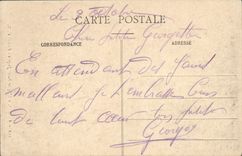 Le 3 Octobre
CARTE POSTALE
Chère petite Georgette
CORRESPONDANCE ADRESSE
En attendant des jours
meilleurs je t'embrasse bien
de tout cœur ton
Georges